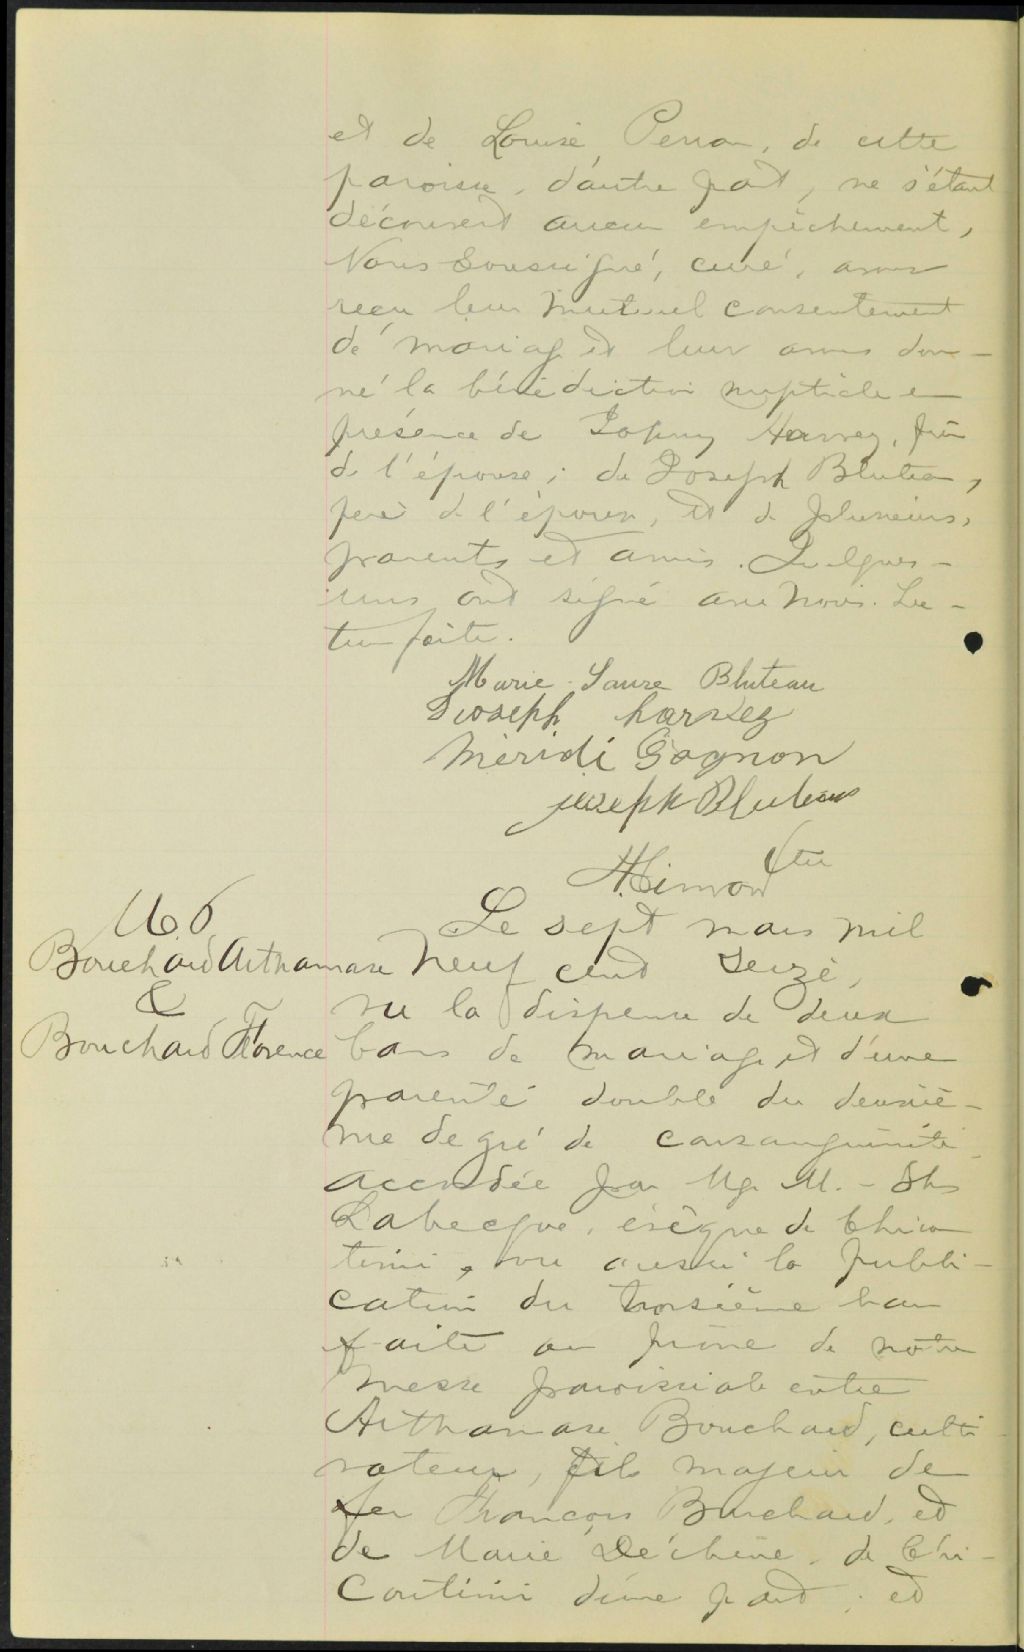 et de Louise Perron, de cette
paroisse, d'autre part, ne s'étant
découvert aucun empêchement,
Nous soussigné, curé, avons
reçu leur mutuel consentement
de mariage et leur avons don-
né la bénédiction nuptiale en
présence de Johnny Harvey, frère
de l'épouse; de Joseph Bluteau,
père de l'époux, et de plusieurs
parents et amis. Quelques-
uns ont signé avec nous. Lec-
ture faite.
Marie-Laure Bluteau
Joseph harvey
Méridi Gagnon
joseph Bluteau
Ptre
M. 6
Bouchard Arthanase
&
Bouchard Florence
Le sept mars mil
neuf cent seize,
vu la dispense de deux
bans de mariage et d'une
parenté double du deuxiè-
me degré de consanguinité
accordée par Mgr M.-Ths
Labecque, évêque de Chicou
timi, vu aussi la publi-
cation du troisième ban
faite au prône de notre
messe paroissiale entre
Arthanase Bouchard, culti-
vateur, fils majeur de
feu François Bouchard, et
de Marie Déchène, de Chi-
coutimi d'une part; et